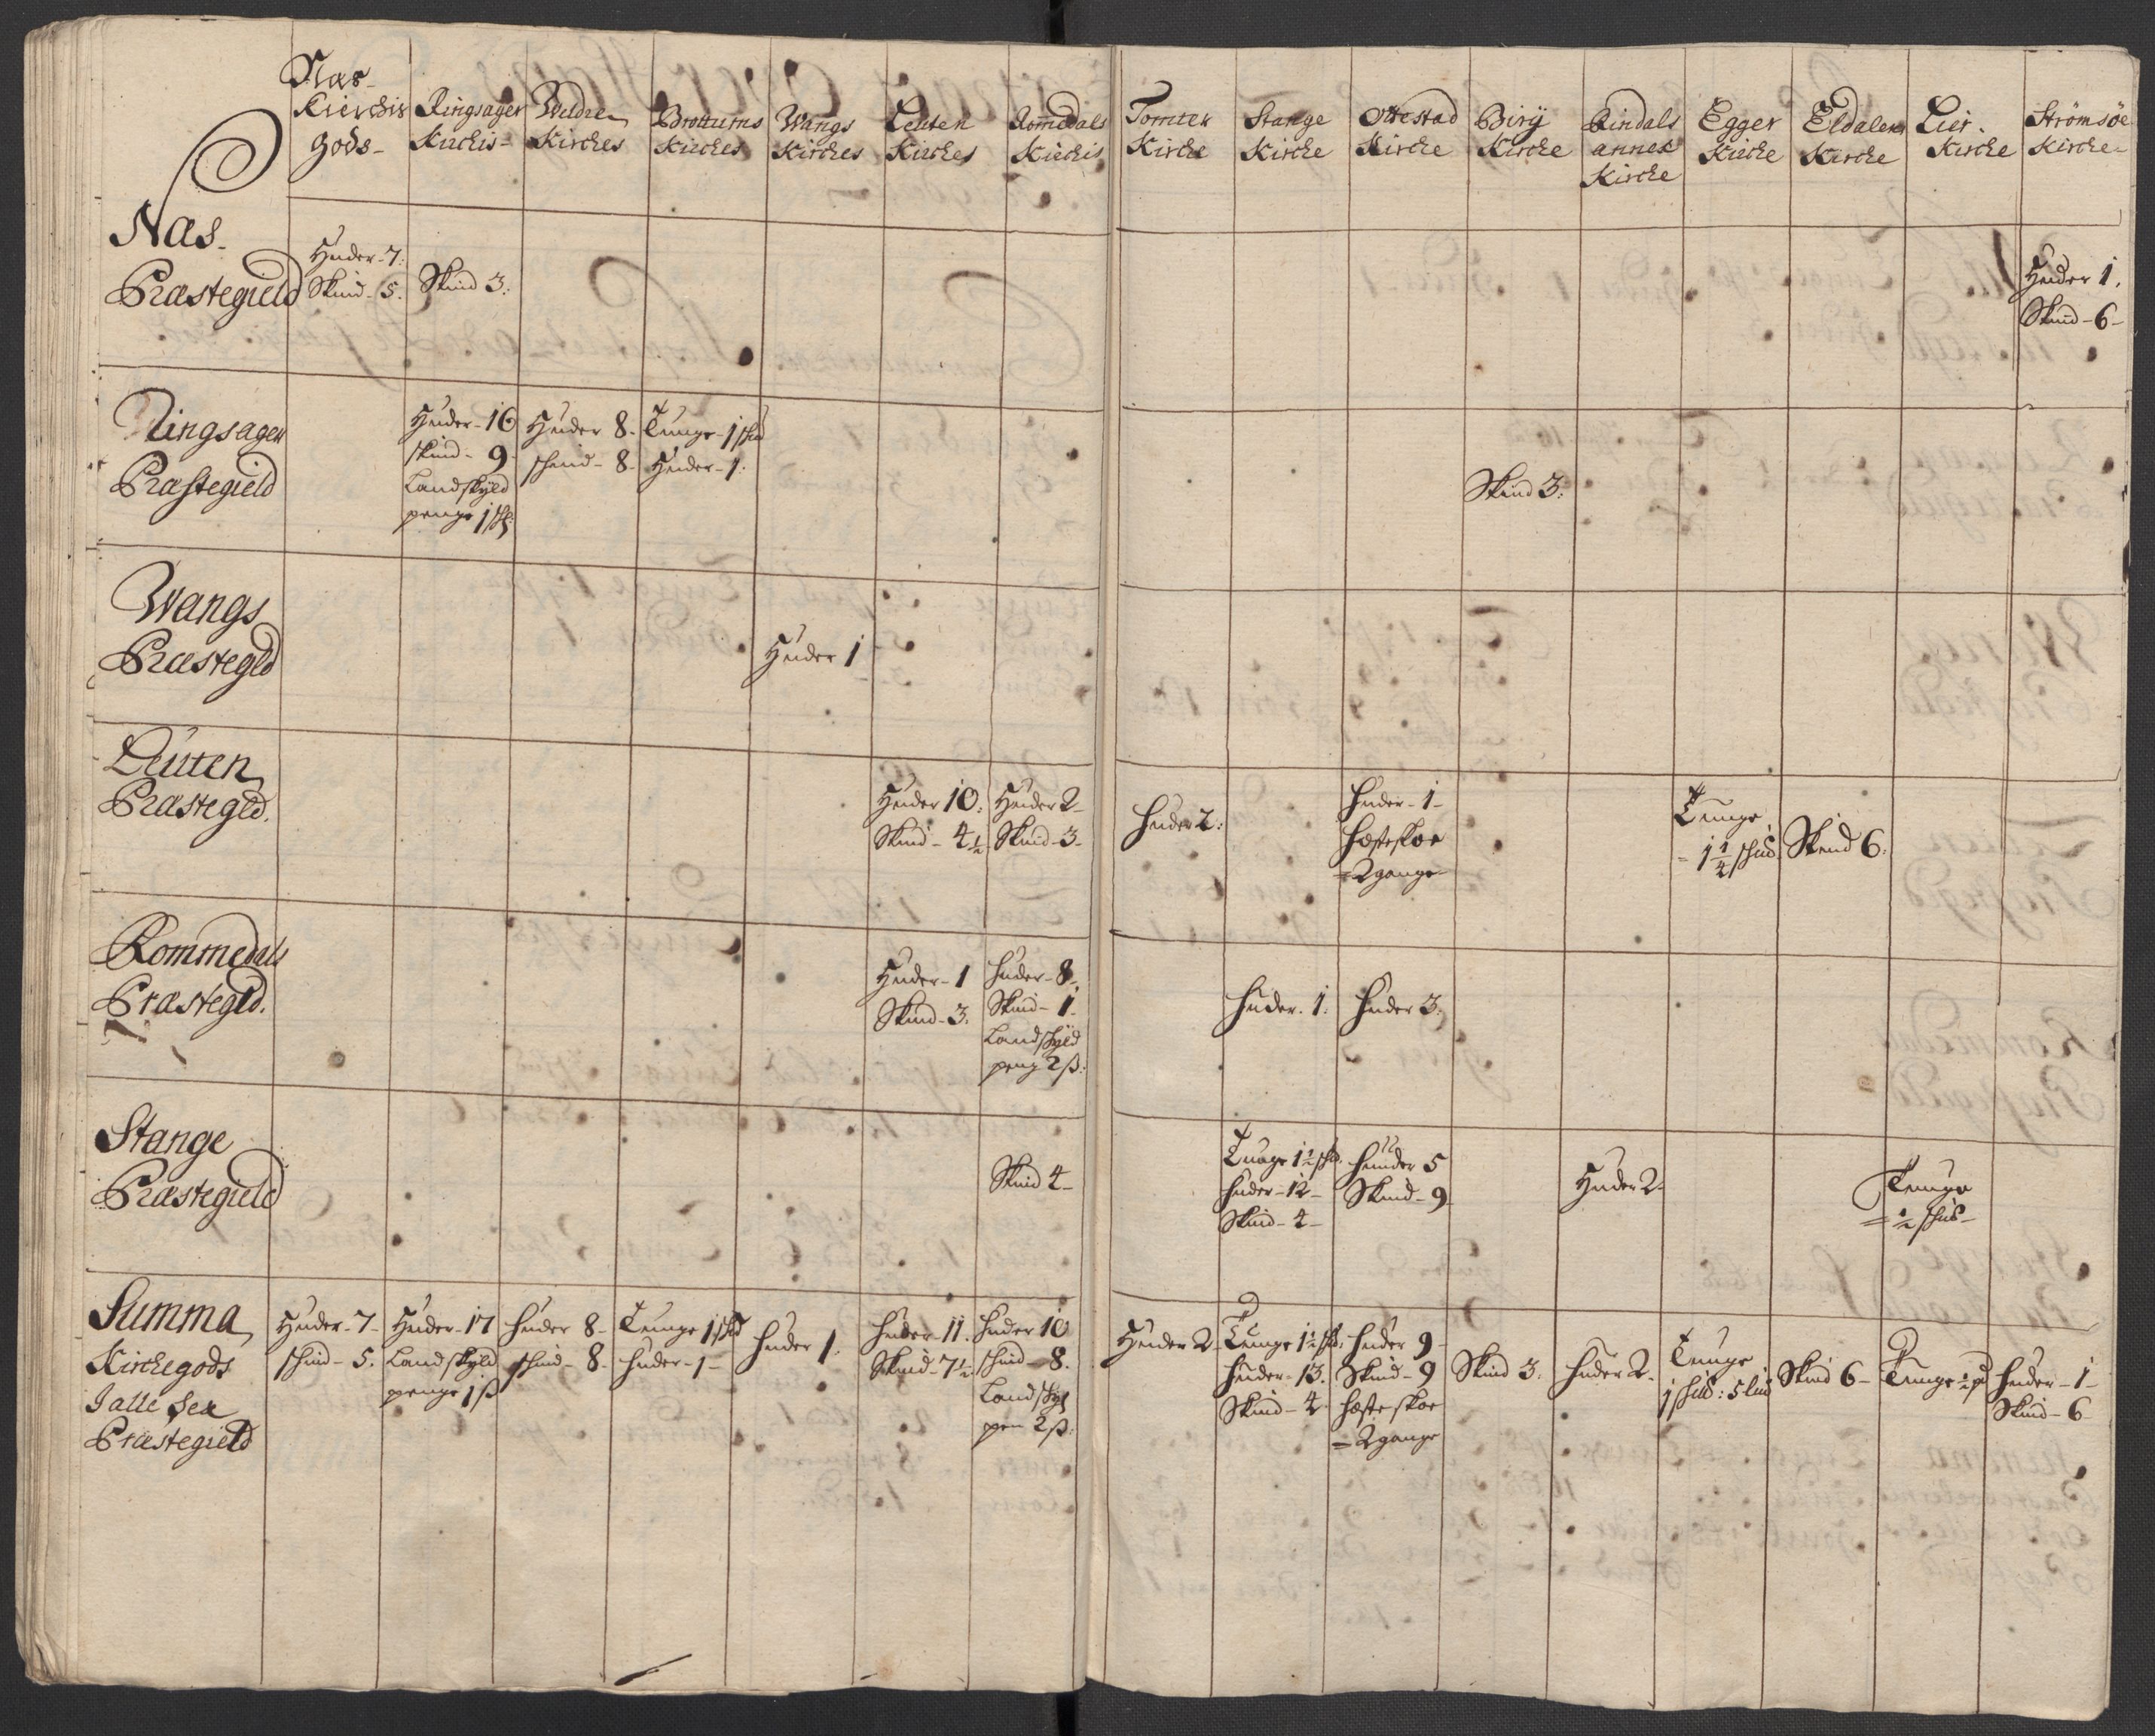 Næs
Kierchis
gods
Ringsager
Kirchis
Weldre
Kirches
Brottums
Kirches
Wangs
Kirches
Leuten
Kirches
Rommedals
Kirchis
Tomter
Kirche
Stange
Kirche
Ottestad
Kirche
Birÿ
Kirche
Rindals
annex
Kirche
Egger
Kirche
Eldalen
Kirche
Lier
Kirche
Strømsøe
Kirche
Næs
Præstegield
Huder 7:
Skind 5.
Skind 3:
Huder 1.
Skind 6
Ringsager
Præstegield
Huder 16
skind 9
Landskÿld
penge 1 ß
Huder 8
skind 8
Tunge 1 skid
Huder 1.
Skind 3:
Wangs
Præstegld
Huder 1
Leuten
Præstegld.
Huder 10.
Skind 4½
Huder 2
Skind 3
Huder 2:
Huder 1
Hæsteskoe
2 gange
Tunge
1¼ skid
Skind 6.
Rommedals
Præstegld.
Huder 1
Skind 3.
Huder 8
Skind 1
Landskÿld
peng 2 ß
Huder 1.
Huder 3.
Stange
Præstegield
Skind 4
Tunge 1½ skd.
Huder 12
Skind 4
Huder 5
Skind 9
Huder 2
Tunge
½ skid
Summa
Kirchegods
J alle Sex
Præstegield
Huder 7
skind 5.
Huder 17
Landskÿld
penge 1 ß
Huder 8
skind 8
Tunge 1 skid
Huder 1
Huder 1.
Huder 11.
Skind 7½
Huder 10
skind 8.
Landskÿl
pen 2 ß
Huder 2
Tunge 1½ skd.
Huder 13.
Skind 4
Huder 9
Skind 9
Hæsteskoe
2 gange
Skind 3.
Huder 2
Tunge
1 skid: 5 lid
Skind 6
Tunge ½ sd
Huder 1
Skind 6